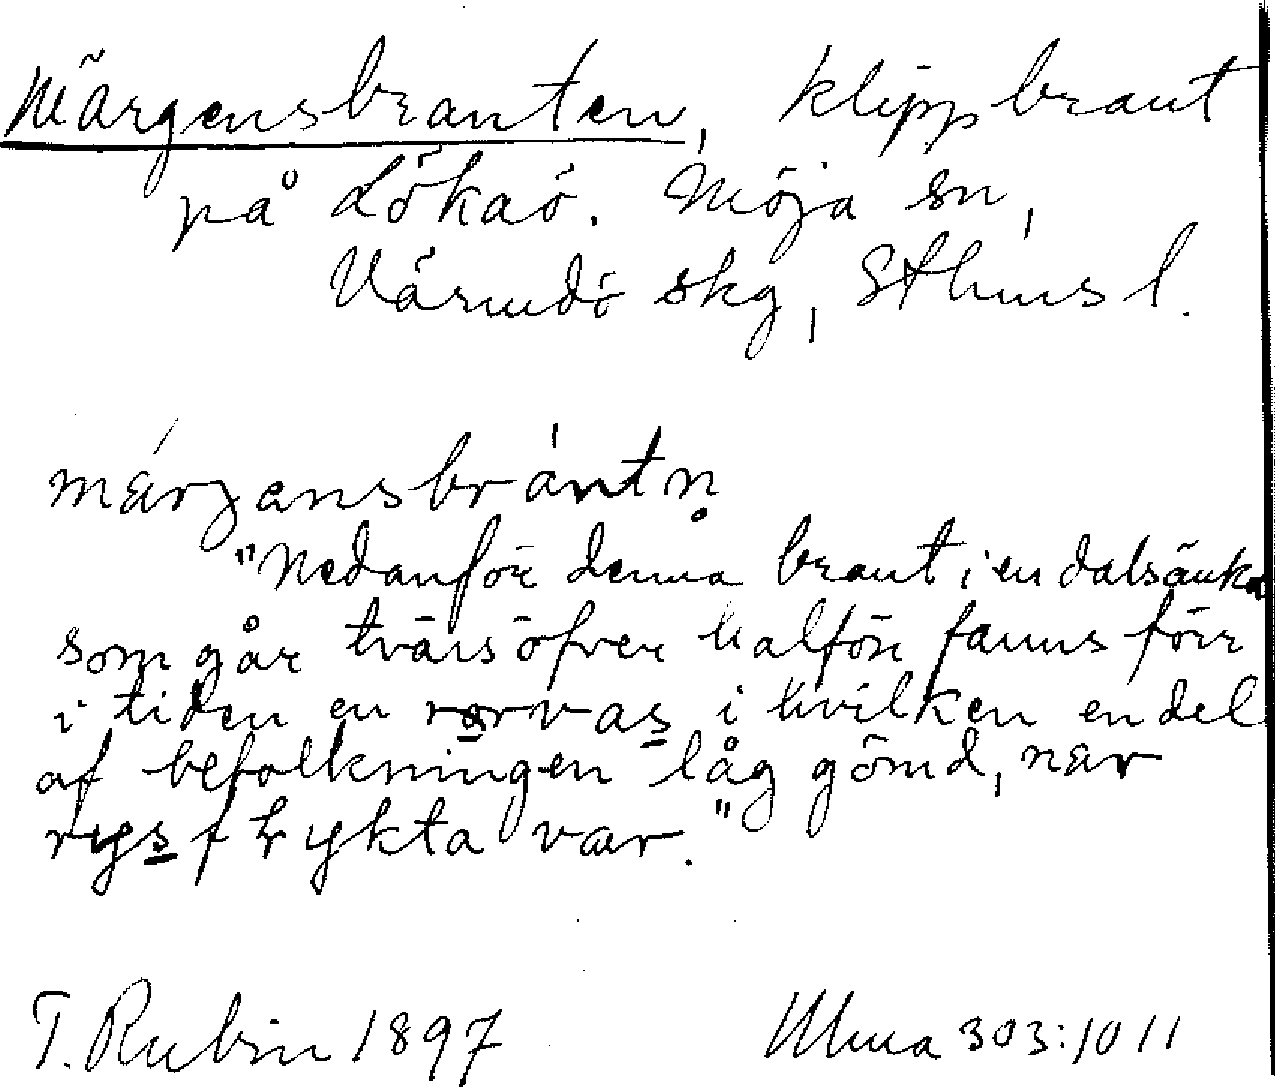 Märgensbranten, klippbrant
på Lökaö. Möja sn,
Värmdö skg, Sthms l.
märjensbràntn̥
"Nedanför denna brant i en dalsänka
som går tvärs öfver halfön fanns förr
i tiden en rorvas i hvilken en del
af befolkningen låg gömd, när
rysflykta var."
T. Rubin 1897
Uma 303:10 11